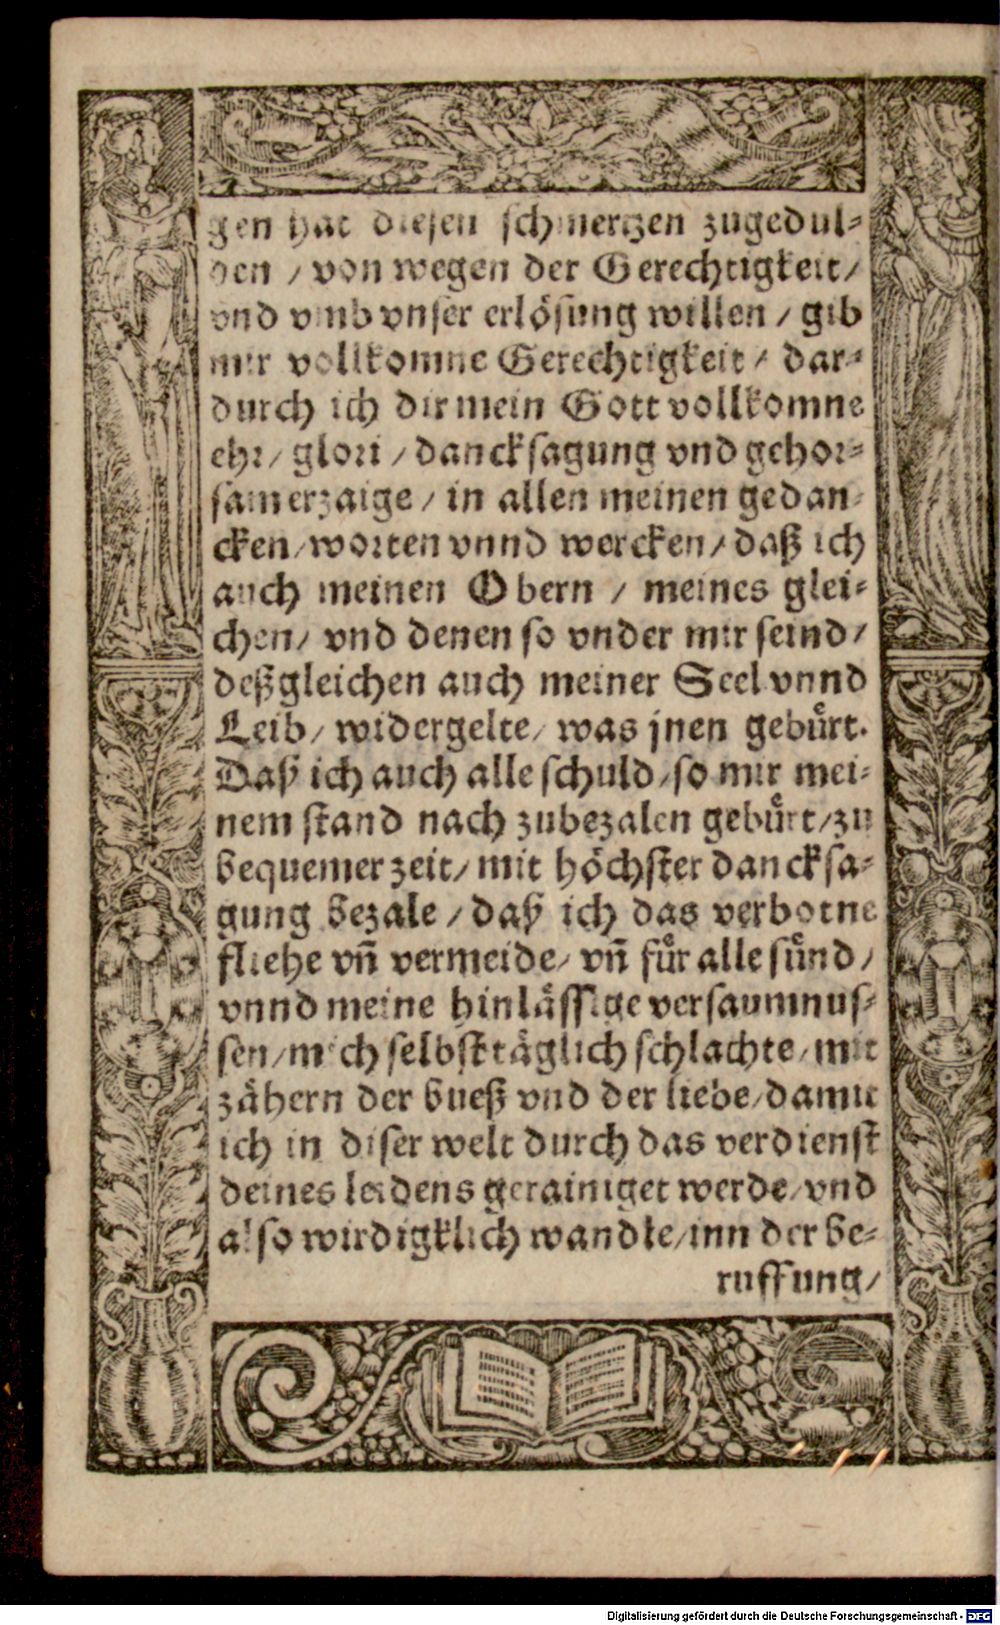 gen hat diesen schmertzen zugedul-
den / von wegen der Gerechtigkeit /
vnd vmb vnser erlösung willen / gib
mir vollkomne Gerechtigkeit / dar-
durch ich dir mein Gott vollkomne
ehr / glori / dancksagung vnd gehor-
sam erzaige / in allen meinen gedan-
cken / worten vnnd wercken / daß ich
auch meinen Obern / meines glei-
chen / vnd denen so vnder mir seind /
deßgleichen auch meiner Seel vnnd
Leib / widergelte / was jnen gebuͤrt.
Daß ich auch alle schuld / so mir mei-
nem stand nach zubezalen gebuͤrt / zu
bequemer zeit / mit hoͤchster dancksa-
gung bezale / daß ich das verbotne
fliehe vñ vermeide / vñ fuͤr alle suͤnd /
vnnd meine hinlaͤssige versaumnus-
sen / mich selbst taͤglich schlachte / mit
zaͤhern der bueß vnd der liebe / damit
ich in diser welt durch das verdienst
deines leidens gerainiget werde / vnd
also wirdigklich wandle / inn der be-
ruffung /
Digitalisierung gefördert durch die Deutsche Forschungsgemeinschaft - DFG